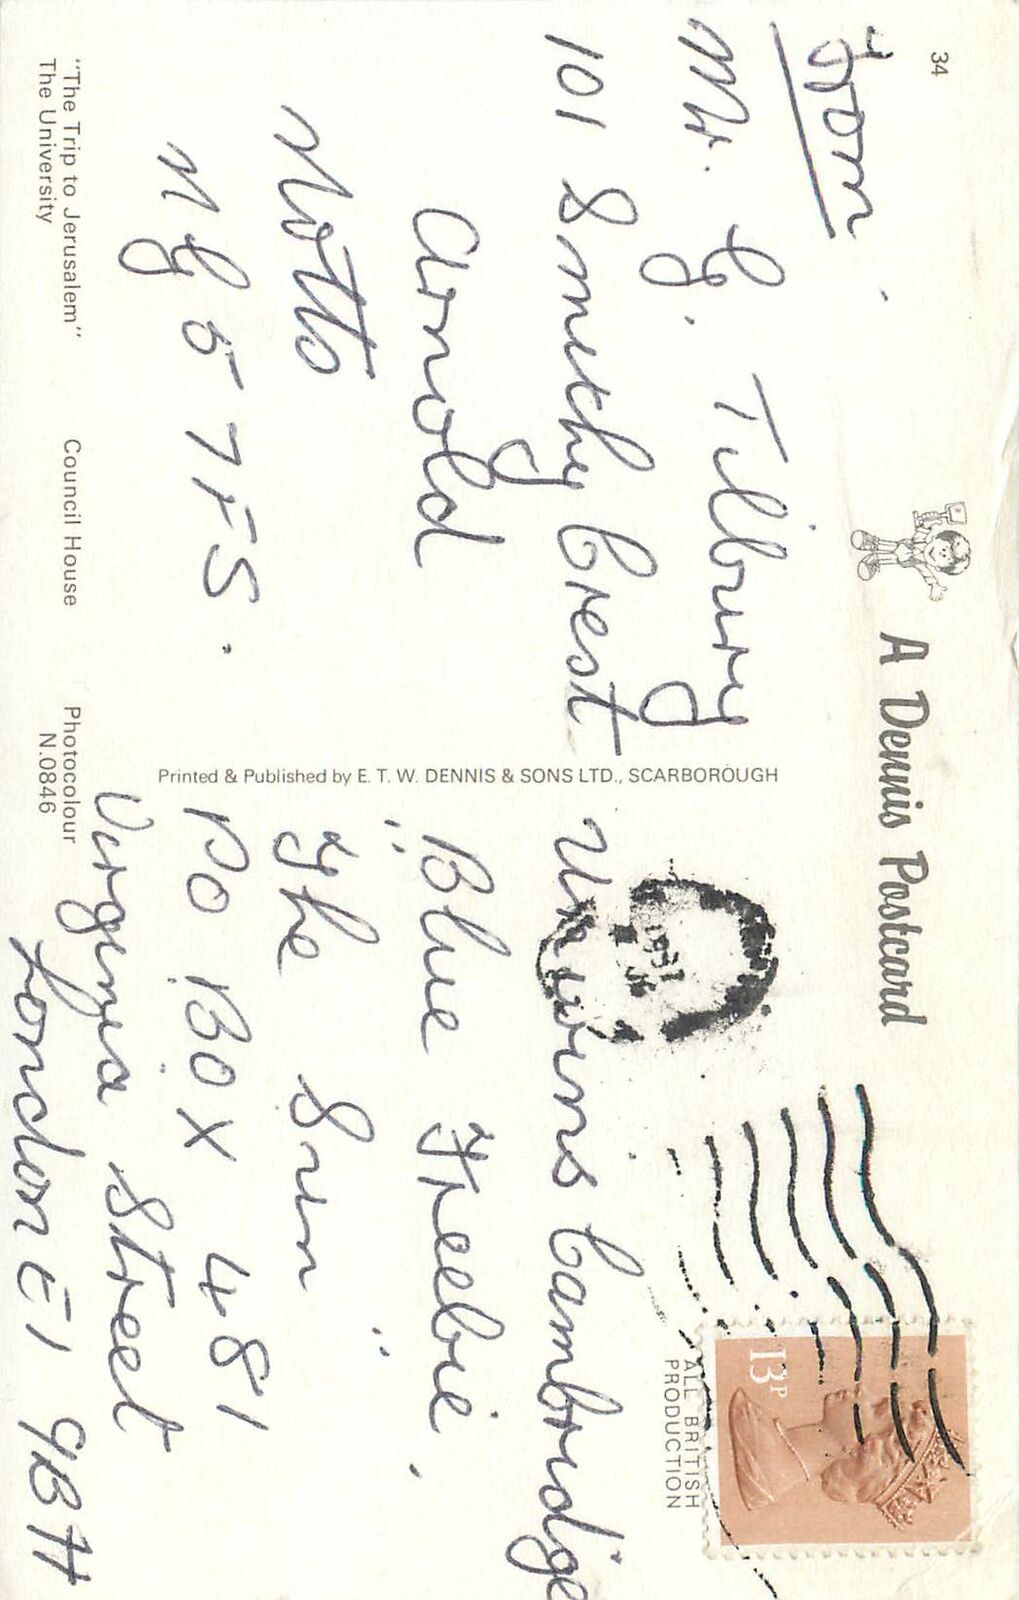 34
A Dennis Postcard
From
Mr. G. Tilbury
101 Smithy Crest
Arnold
Notts
NG5 7FS.
"The Trip to Jerusalem" Council House Photocolour
The University N.0846
Printed & Published by E. T. W. DENNIS & SONS LTD., SCARBOROUGH
13P
ALL BRITISH
PRODUCTION
Unwins Cambridge
"Blue Freebie".
The Sun
PO BOX 481
Virginia Street
London E1 9BH